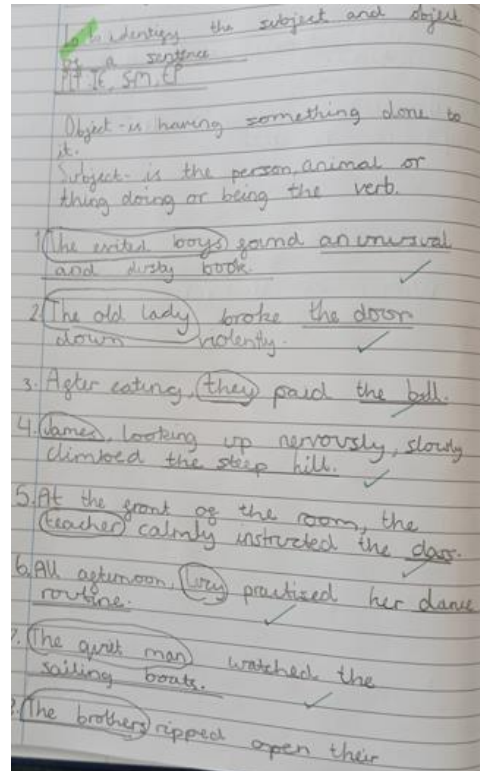 to identify the subject and object
of a sentence
Object - is having something done to
it.
Subject - is the person, animal or
thing doing or being the verb.
1. The exited boys found an unusual
and dusty book.
2. The old lady broke the door
down violently.
3. After eating, they paid the bill.
4. James, looking up nervously, slowly
climbed the steep hill.
5. At the front of the room, the
teacher calmly instructed the class.
6. All afternoon, Lucy practised her dance
routine.
7. The quiet man watched the
sailing boats.
The brothers ripped open their